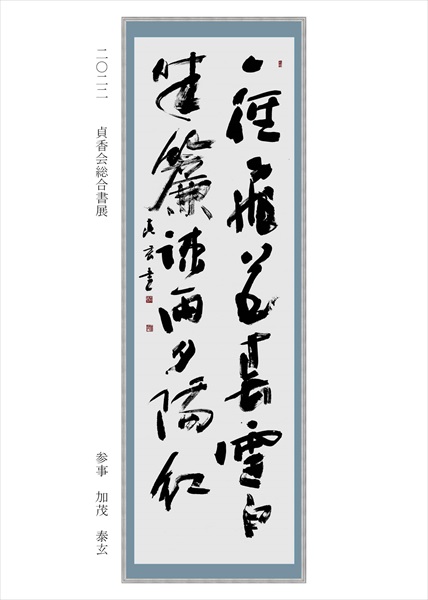 一径飛花春雪白
半簾疎雨夕陽紅
泰玄書
二〇二二　貞香会総合書展
参事　加茂　泰玄